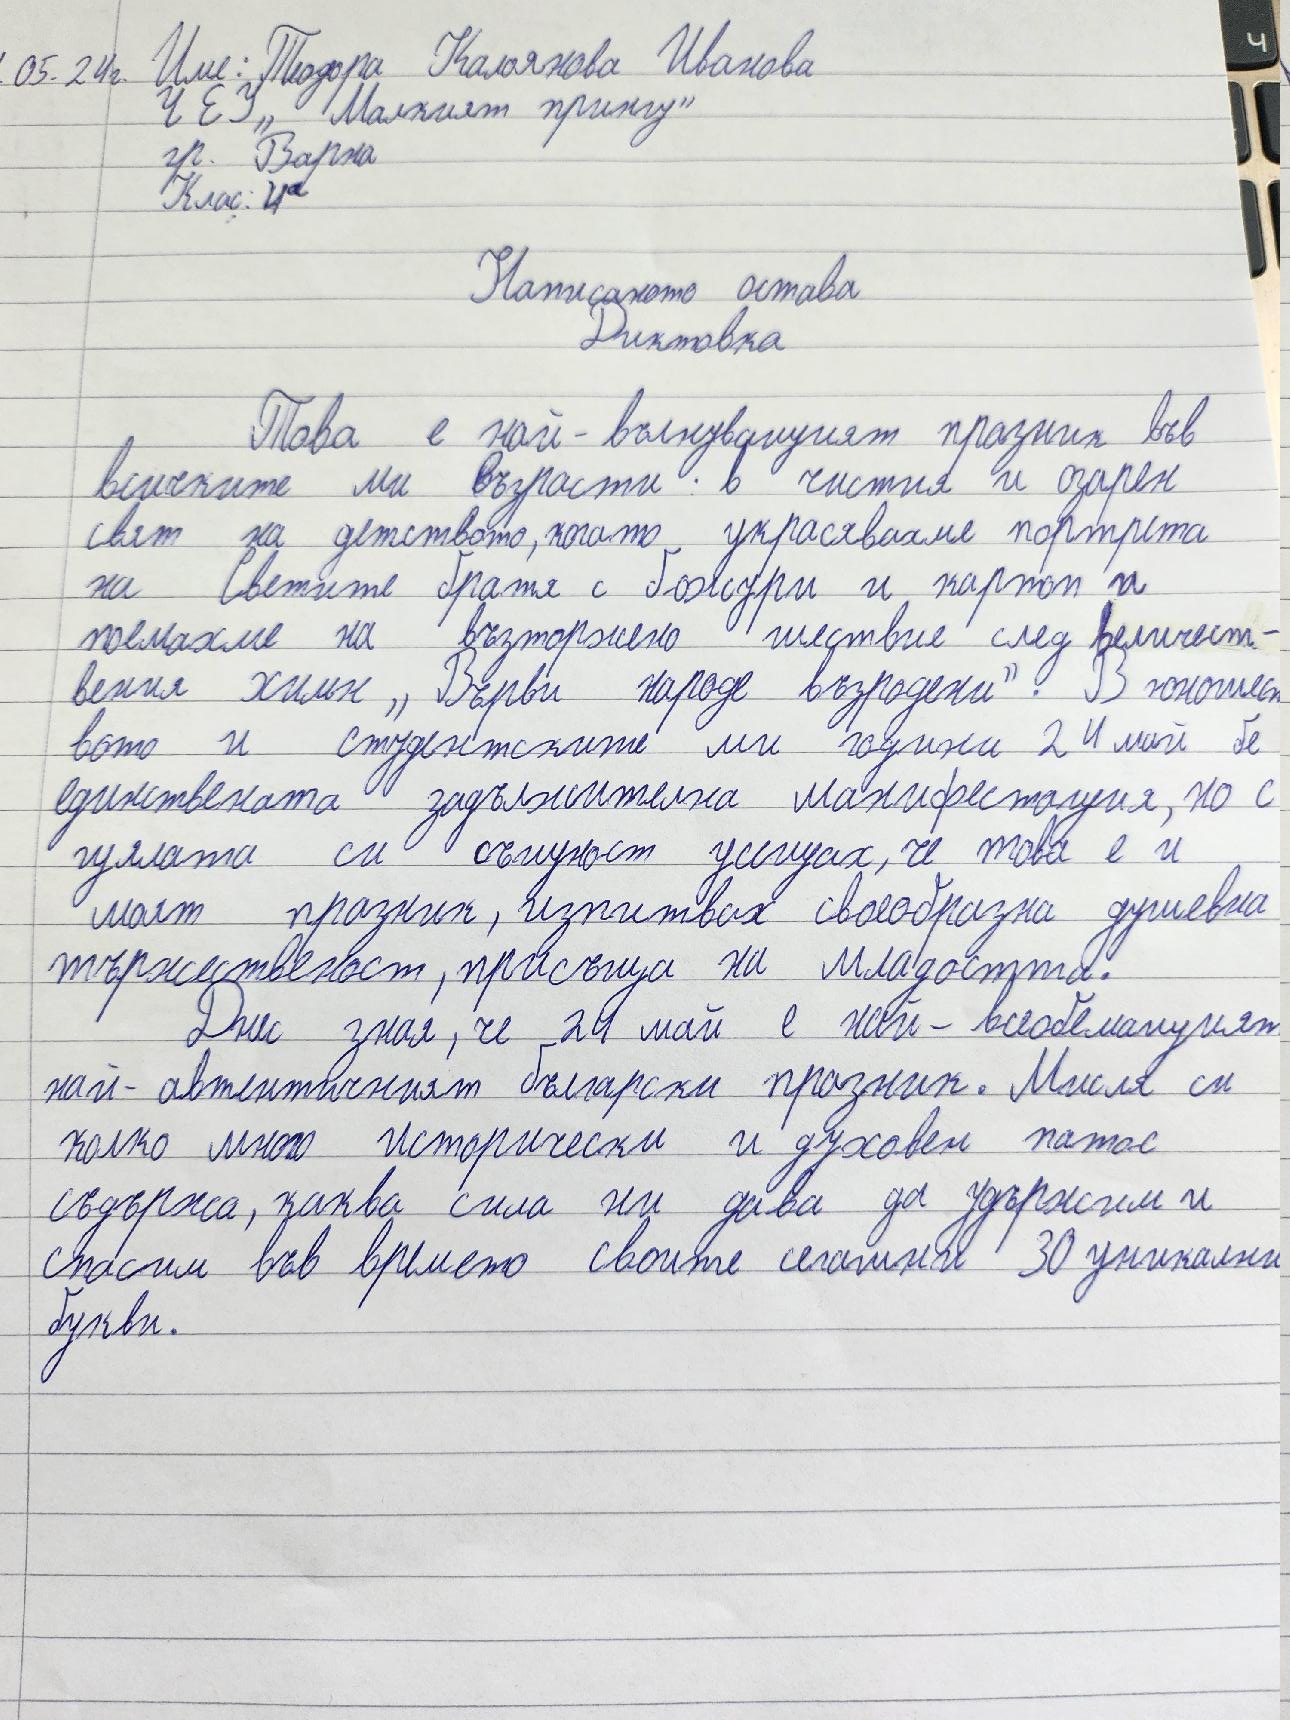 .05.24г. Име: Теодора Калоянова Иванова
ЧЕЗ„ Малкият принц”
гр. Варна
Клас: 4а
Написаното остава
Диктовка
Това е най-вълнуващият празник във
всичките ми възрасти: в чистия и озарен
свят на детството, когато украсявахме портрета
на Светите братя с божури и картон и
поемахме на възторжено шествие след величест-
вения химн „Върви народе възродени”. В юношест
вото и студентските ми години 24 май бе
единствената задължителна манифестация, но с
цялата си същност усещах, че това е и
моят празник, изпитвах своеобразна душевна
тържественост, присъща на младостта.
Днес зная, че 24 май е най-всеобемащият
най-автентичният български празник. Мисля си
колко много исторически и духовен патос
съдържа, каква сила ни дава да удържим и
спасим във времето своите сегашни 30 уникални
букви.
ч